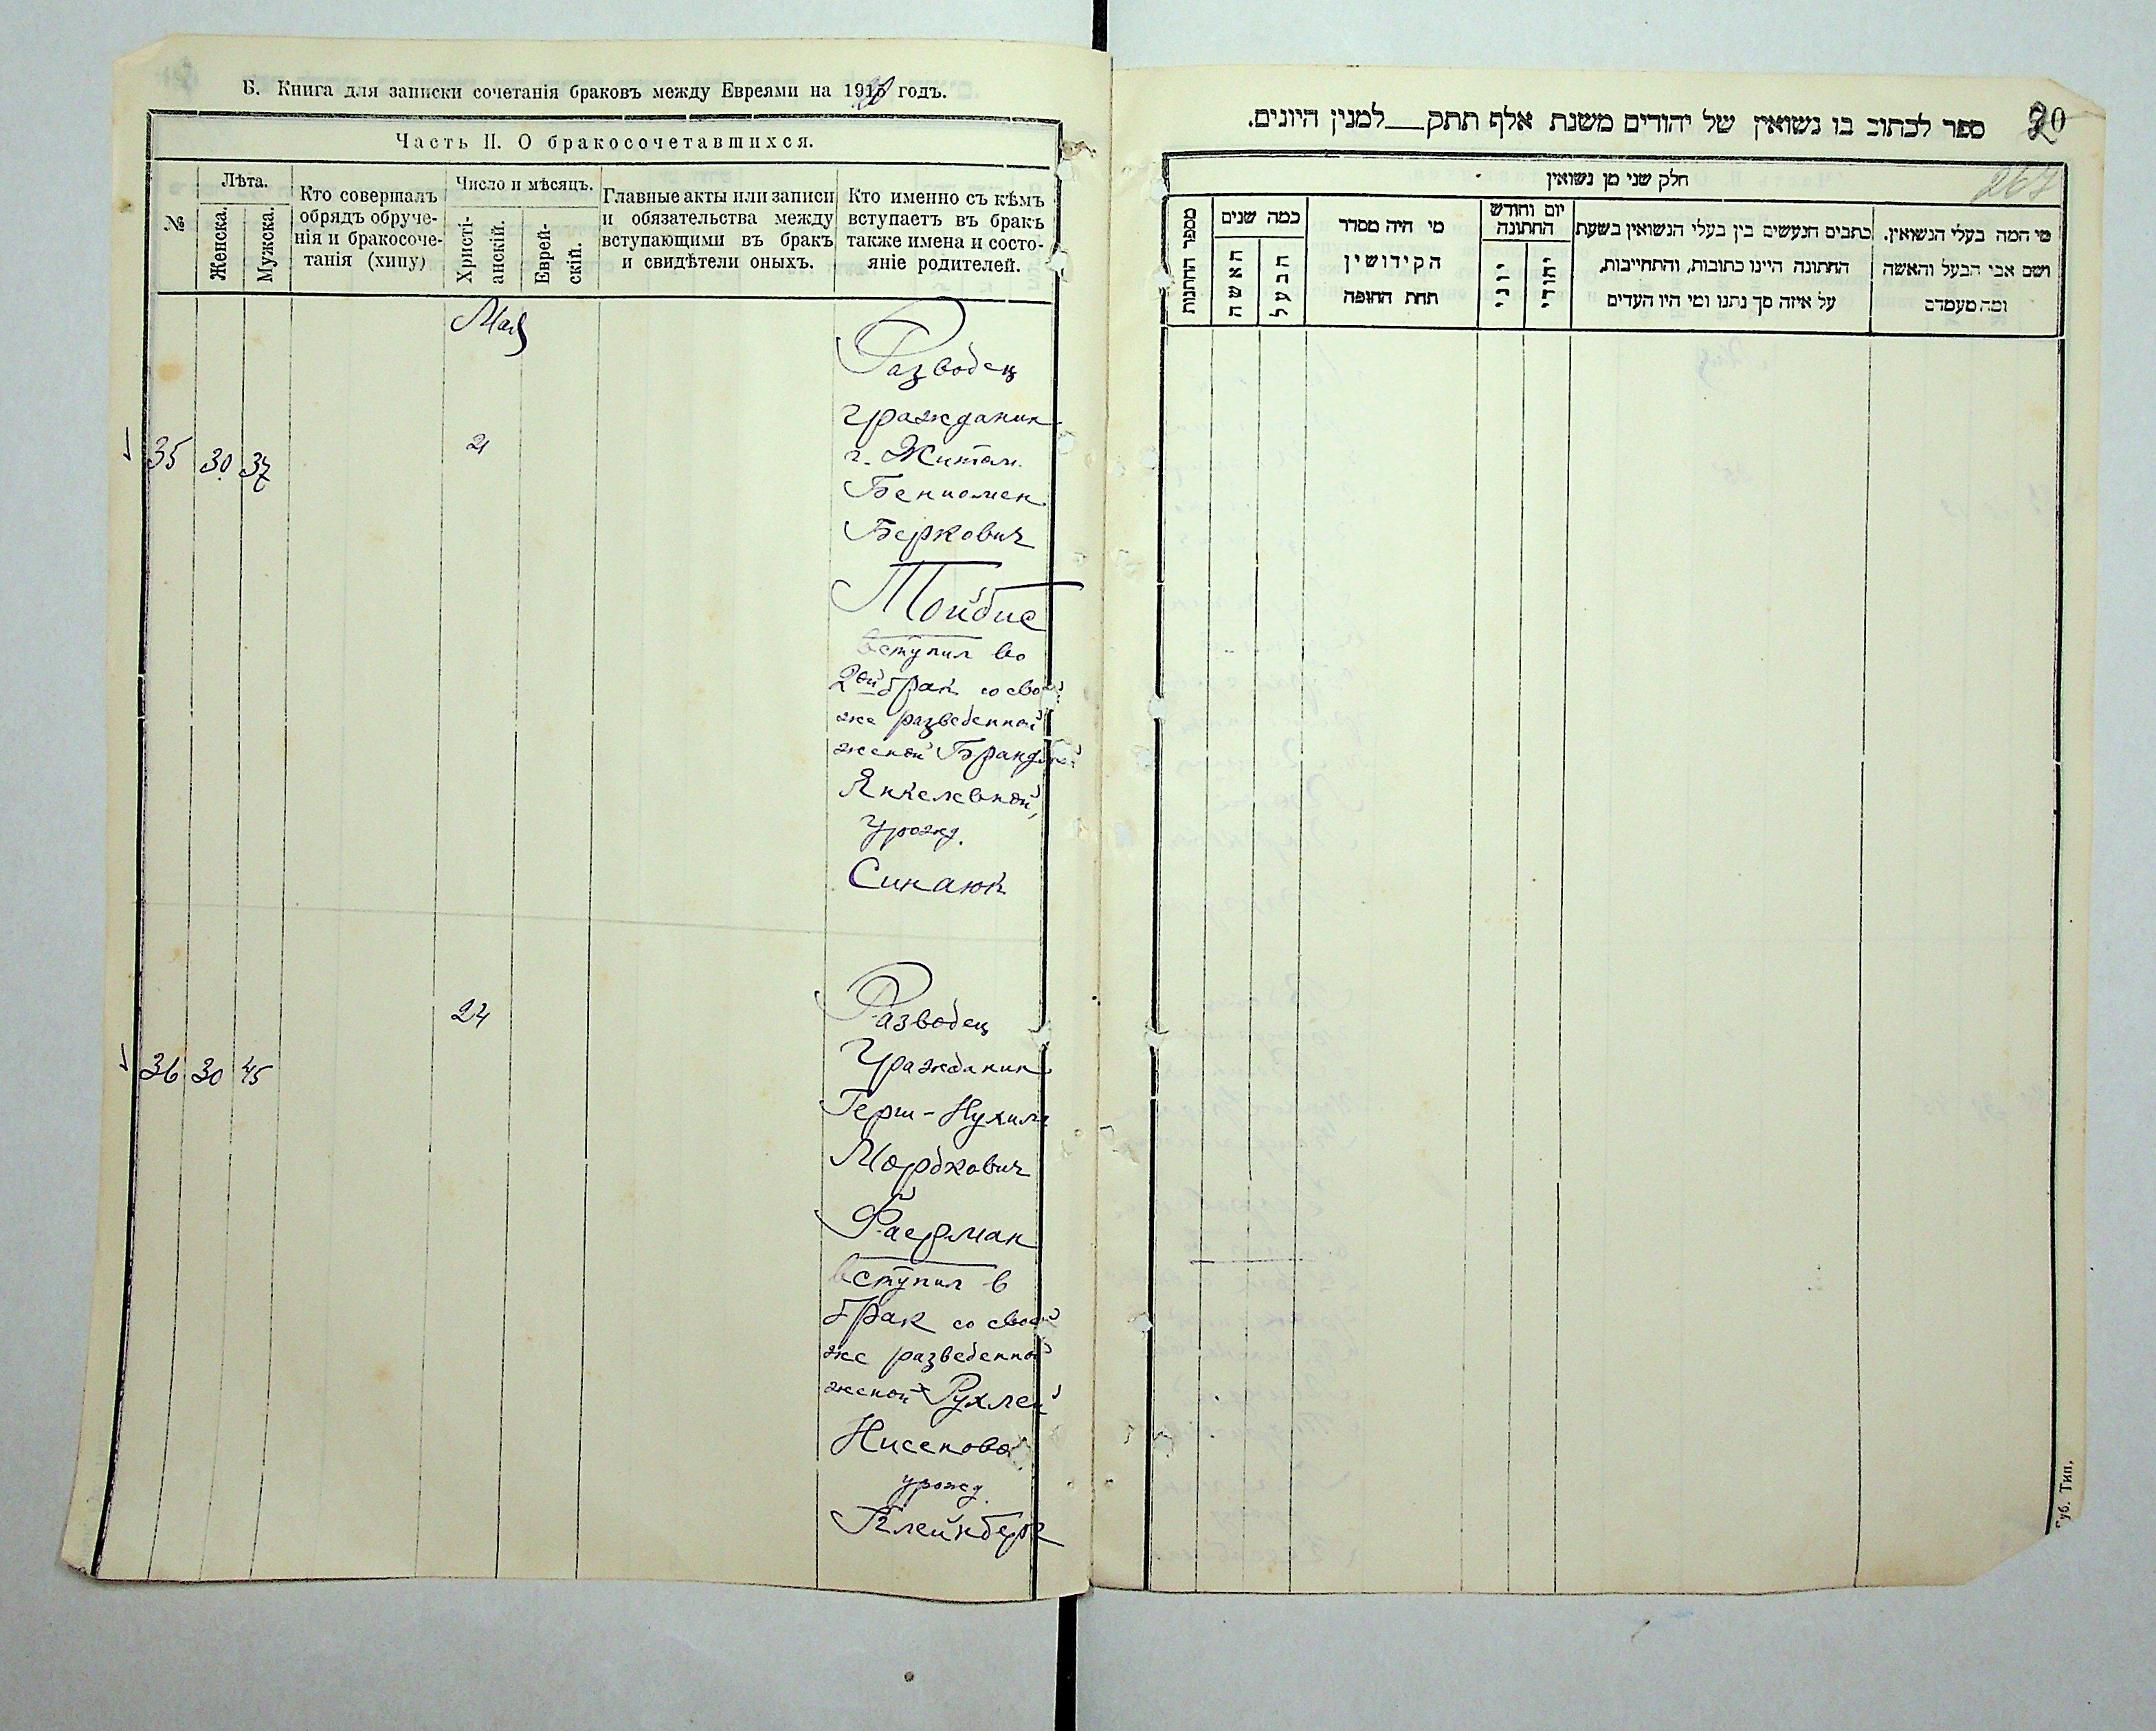 Б. Книга для записки сочетанія браковъ между Евреями на 191 годъ.
Часть II. О бракосочетавшихся.
№
Лѣта.
Женска.
Мужска.
Кто совершалъ
обрядъ обруче-
нія и бракосоче-
танія (хипу)
Число и мѣсяцъ.
Христі-
анскій.
Еврей-
скій.
Главные акты или записи
и обязательства между
вступающими въ бракъ
и свидѣтели оныхъ.
Кто именно съ кѣмъ
вступаетъ въ бракъ
также имена и состо-
яніе родителей.
Май
35 30 37
21
Разводец
гражданин
г. Житом.
Бениомен
Беркович
Тойбис
вступил во
2ой брак со свой
же разведенной
женой
Янкелевной,
урожд.
Синаюк
36 30 45
24
Разводец
Гражданин
Герш-Нухим
Мордкович
вступил в
брак со своей
же разведенной
женой Рухлей
Нисеново
урожд.
Клейнберг
ספר לכתוב בו נשואין של יהודים משנת אלף תתק__למנין היונים.
20
267
חלק שני מן נשואין
מספר החתונות
כמה שנים
האשה
הבעל
מי היה מסדר
הקידושין
תחת החופה
יום וחודש
החתונה
יוני
יהודי
כתבים הנעשים בין בעלי הנשואין בשעת
החתונה היינו כתובות, והתחייבות,
על איזה סך נתנו ומי היו העדים
מי המה בעלי הנשואין.
ושם אבי הבעל והאשה
ומה מעמדם
Губ. Тип.